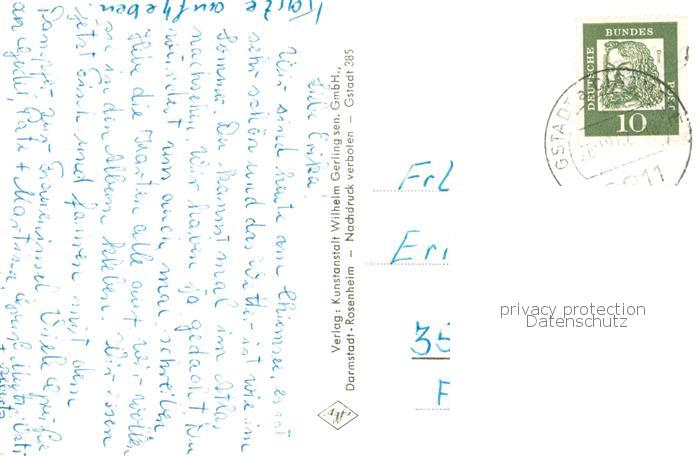 Karte aufheben!
Liebe Erika!
Wir sind heute am Chiemsee, es ist
sehr schön und das Wetter ist wie im
Sommer. Du kannst mal im Atlas
nachsehen. Wir haben ja gedacht Du
würdest uns auch mal schreiben
Hebe die Karten alle auf wir wollen
sie in das Album kleben. Wir essen
jetzt Fisch und fahren mit dem
Dampfer zur Fraueninsel. Viele Grüße
Verlag: Kunstanstalt Wilhelm Gerlingsen, GmbH.,
Darmstadt-Rosenheim — Nachdruck verboten — Gstadt 385
DEUTSCHE
BUNDES
POST
10
GSTADT
8211
Frl
Eri
35
F
privacy protection
Datenschutz